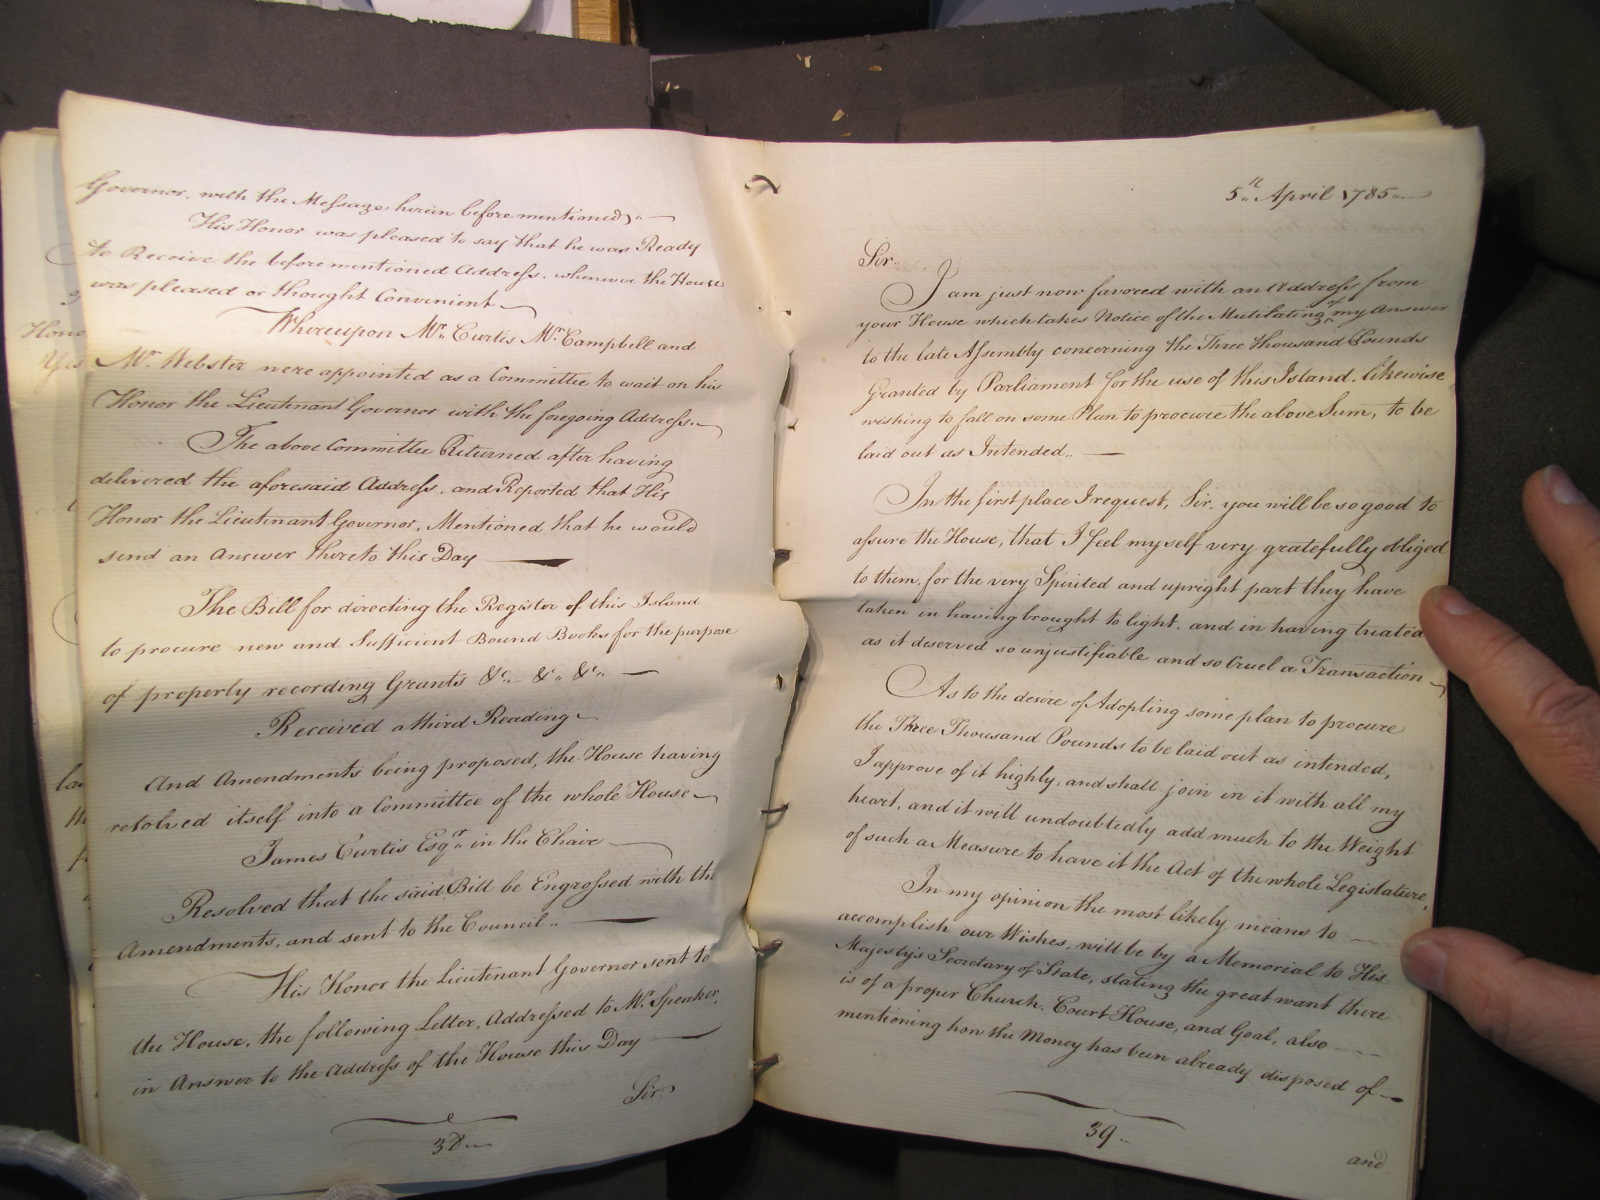 Governor, with the Message herein before mentioned,
His Honor was pleased to say that he was Ready
to Receive the beforementioned Address, whenever the House
was pleased or thought Convenient
Whereupon Mr. Curtis Mr. Campbell and
Mr. Webster were appointed as a Committee to wait on his
Honor the Lieutenant Governor with the foregoing Address.
The above Committee Returned after having
delivered the aforesaid Address, and Reported that His
Honor the Lieutenant Governor, Mentioned that he would
send an Answer thereto this Day
The Bill for directing the Register of this Island
to procure new and Sufficient Bound Books for the purpose
of properly recording Grants &c. &c. &c.
Received a third Reading
And Amendments being proposed, the House having
resolved itself into a Committee of the whole House
James Curtis Esqr. in the Chair
Resolved that the said Bill be Engrossed with the
Amendments, and sent to the Council
His Honor the Lieutenant Governor sent to
the House, the following Letter, Addressed to Mr. Speaker,
in Answer to the Address of the House this Day
Sir
38
5th. April 1785
Sir
I am just now favored with an Address from
your House which takes Notice of the Mutilating of my Answer
to the late Assembly concerning the Three thousand Pounds
Granted by Parliament for the use of this Island, likewise
wishing to fall on some Plan to procure the above Sum, to be
laid out as Intended.
In the first place I request, Sir, you will be so good to
assure the House, that I feel myself very gratefully obliged
to them, for the very Spirited and upright part they have
taken in having brought to light, and in having treated
as it deserved so unjustifiable and so Cruel a Transaction
As to the desire of Adopting some plan to procure
the Three Thousand Pounds to be laid out as intended,
I approve of it highly, and shall join in it with all my
heart, and it will undoubtedly add much to the Weight
of such a Measure to have it the Act of the whole Legislature,
In my opinion the most likely means to
accomplish our Wishes, will be by a Memorial to His
Majesty's Secretary of State, stating the great want there
is of a proper Church, Court House, and Goal, also
mentioning how the Money has been already disposed of
39
and